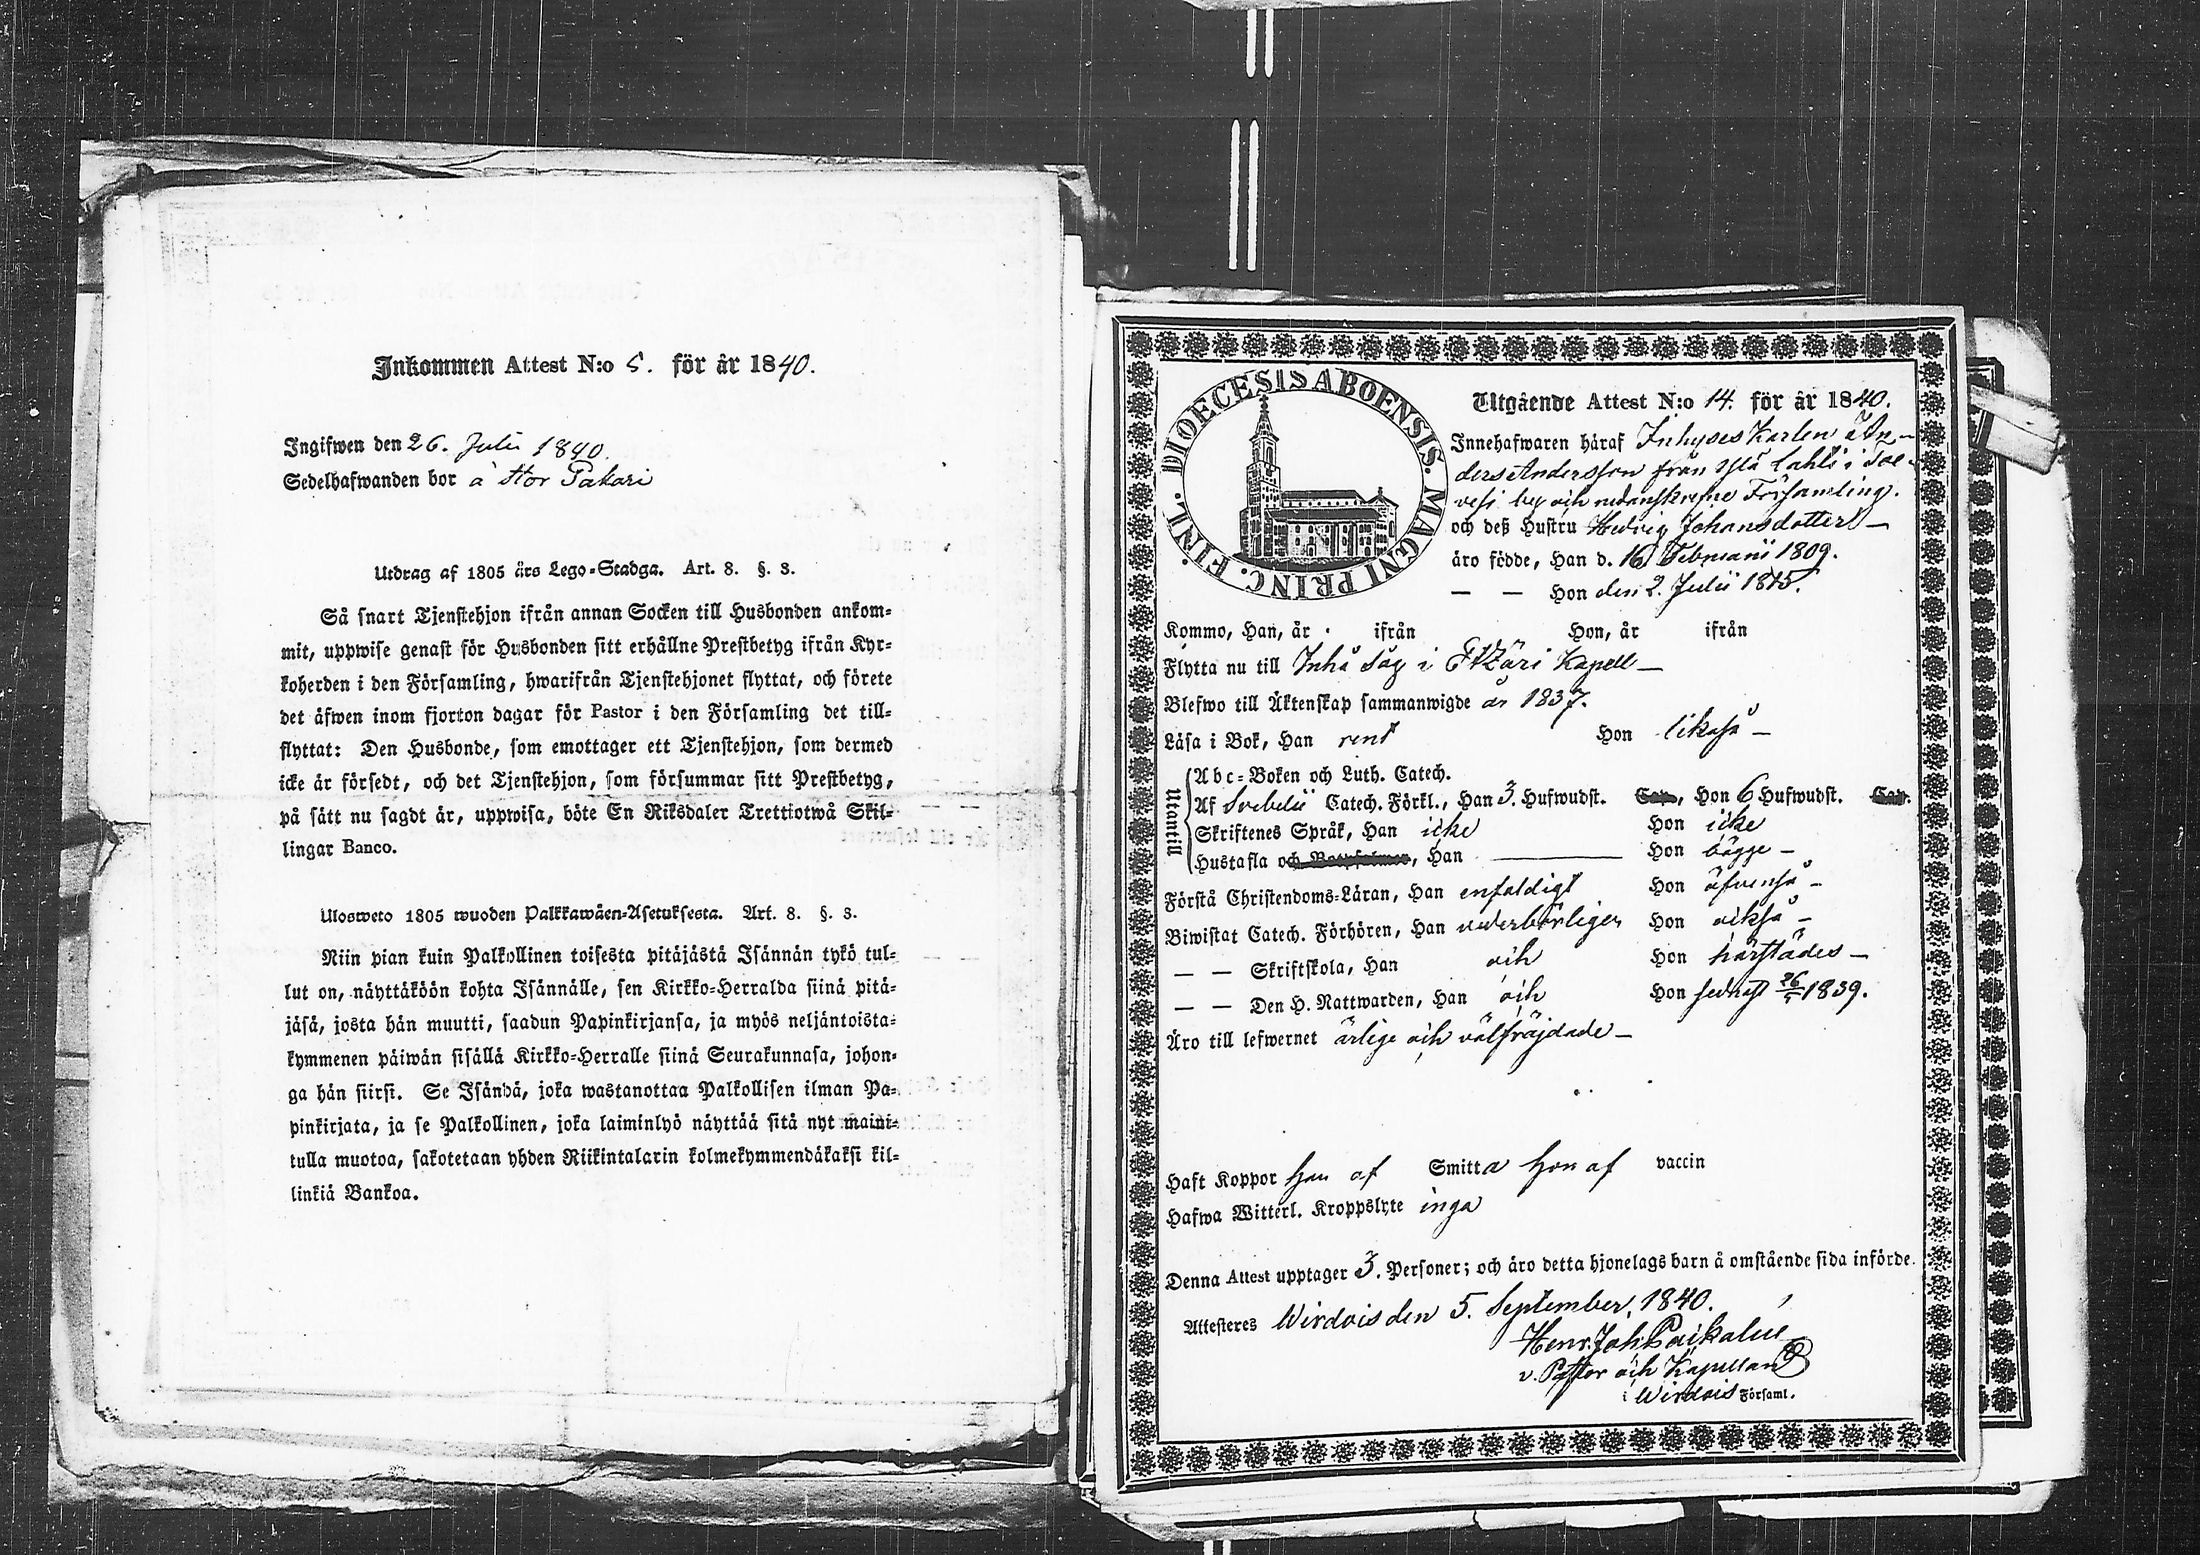 Inkommen Attest N:o 5. för år 1840.
Ingifwen den 26. Julii 1840.
Sedelhafwanden bor å Stor Pakari
Utdrag af 1805 års Lego-Stadga. Art. 8. §. 3.
Så snart Tjenstehjon ifrån annan Socken till Husbonden ankom-
mit, uppwise genast för Husbonden sitt erhållne Prestbetyg ifrån Kyr-
koherden i den Församling, hwarifrån Tjenstehjonet flyttat, och förete
det äfwen inom fjorton dagar för Pastor i den Församling det till-
flyttat: Den Husbonde, som emottager ett Tjenstehjon, som dermed
icke är försedt, och det Tjenstehjon, som försummar sitt Prestbetyg,
på sätt nu sagdt är, uppwisa, böte En Riksdaler Trettiotwå Skil-
lingar Banco.
Ulosweto 1805 wuoden Palkkawäen-Asetuksesta. Art. 8. §. 3.
Niin pian kuin Palkollinen toisesta pitäjästä Isännän tykö tul-
lut on, näyttäköön kohta Isännälle, sen Kirkko-Herralda siinä pitä-
jäsä, josta hän muutti, saadun Papinkirjansa, ja myös neljäntoista-
kymmenen päiwän sisällä Kirkko-Herralle siinä Seurakunnasa, johon-
ga hän siirsi. Se Isändä, joka wastanottaa Palkollisen ilman Pa-
pinkirjata, ja se Palkollinen, joka laiminlyö näyttää sitä nyt maini-
tulla muotoa, sakotetaan yhden Riikintalarin kolmekymmendäkaksi kil-
linkiä Bankoa.
DIOECESIS ABOENSIS. MAGNI PRINC. FINL.
Utgående Attest N:o 14. för år 1840.
Innehafwaren häraf Inhyses Karlen An-
ders Andersson från Ylä Lahti i
by och nedanskrefne Församling.
och deß Hustru Hedvig Johansdotter
äro födde, Han d. 16 Februarii 1809.
— — Hon den 2. Julii 1815.
Kommo, Han, år ifrån Hon, år ifrån
Flytta nu till Inhå Såg i Etzäri Kapell —
Blefwo till Äktenskap sammanwigde år 1837.
Läsa i Bok, Han rent Hon likaså —
Utantill
Abc-Boken och Luth. Catech.
Af Svebelii Catech. Förkl., Han 3. Hufwudst. Cap., Hon 6 Hufwudst. Cap.
Skriftenes Språk, Han icke Hon icke
Hustafla och Botpsalmer, Han — Hon bägge —
Förstå Christendoms-Läran, Han enfaldigt Hon äfvenså —
Biwistat Catech. Förhören, Han vederbörligen Hon också —
— — Skriftskola, Han och Hon härstädes —
— — Den H. Nattwarden, Han och Hon sednast 26/5 1839.
Äro till lefwernet ärlige och välfräjdade —
Haft Koppor Han af Smitta Hon af vaccin
Hafwa Witterl. Kroppslyte inga
Denna Attest upptager 3. Personer; och äro detta hjonelags barn å omstående sida införde.
Attesteres Wirdois den 5. September 1840.
Henr. Joh.
v. Pastor och Kapellan
i Wirdois Församl.